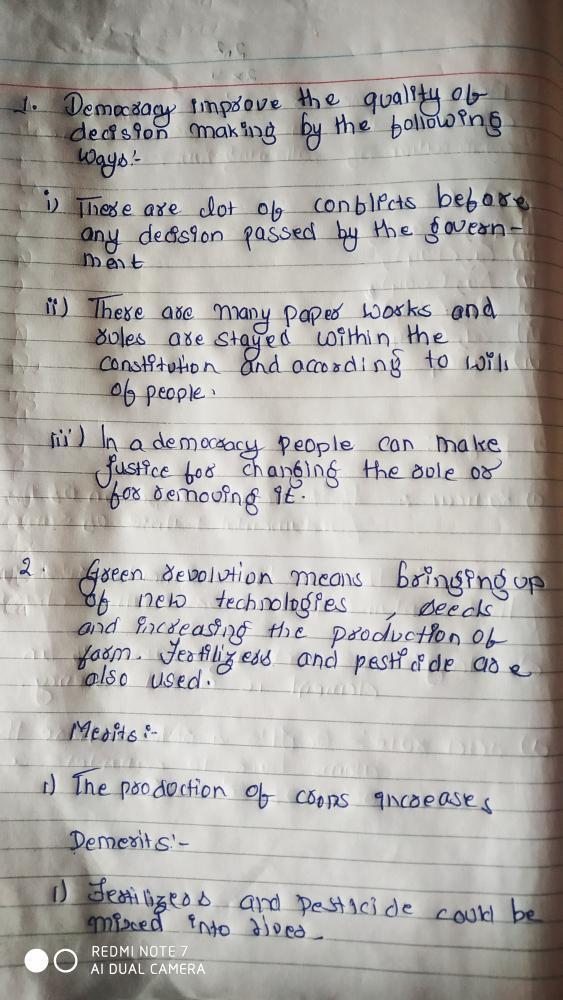 1. Democracy improve the quality of
decision making by the following
ways:-
i) There are lot of conflicts before
any decision passed by the govern-
ment
ii) There are many paper works and
rules are stayed within the
constitution and according to will
of people.
iii) In a democracy people can make
justice for changing the role or
for removing it.
2. Green revolution means bringing up
of new technologies, seeds
and increasing the production of
farm. Fertilizers and pesticide are
also used.
Merits:-
1) The production of crops increases
Demerits:-
1) Fertilizers and pesticide could be
mixed into river.
REDMI NOTE 7
AI DUAL CAMERA